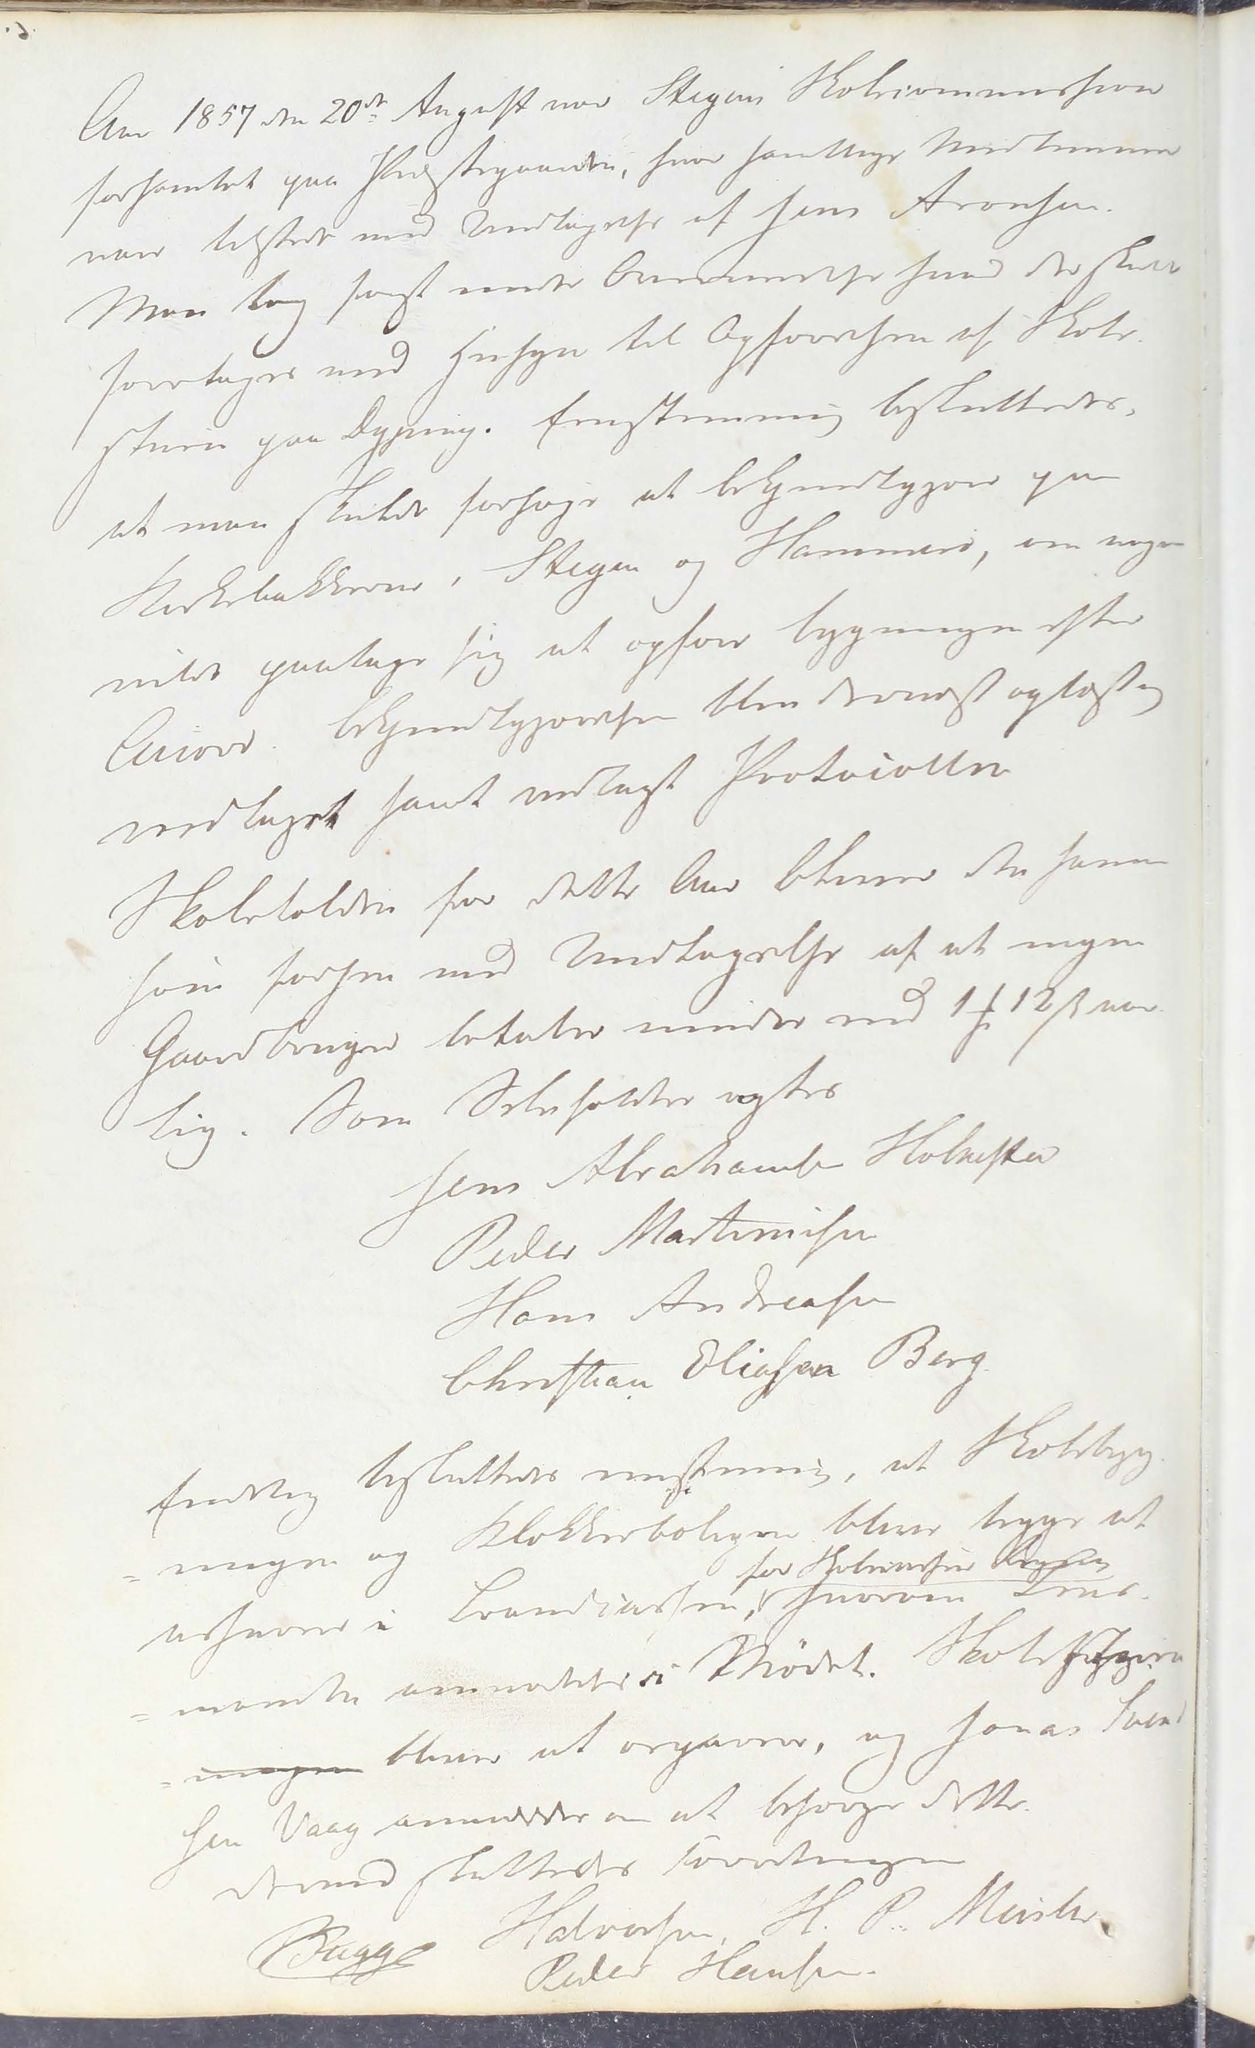 Aar 1857 den 20de August var Stegens Skolecommission
forsamlet paa Præstegaarden, hvor samtlige Medlemmer
vare tilstede med Undtagelse af Jens Aronsen.
Man tog først under Overveielse hvad der skulde
foretages med Hensyn til Opførelsen af Skole-
stuen paa Dyping. Eenstemmig besluttedes,
at man skulde forsøge at bekjendtgjøre paa
Kirkebakkerne, Stegen og Hammerø, om nogen
vilde paatage sig at opføre bygningen efter
Accord. bekjendtgjørelsen blev dernæst oplæst og
vedtaget samt vedlagt Protocollen
Skoletolden for dette Aar bliver den samme
som forhen med Undtagelse af at ingen
Gaardbruger betaler mindre end 1 ꝉ 12 ß aar-
lig. Som Selvholder valgtes
Jens Abrahamsen Holkestad
Peder Martinusen
Hans Andreasen
Christian Eliasen Berg.
Endelig besluttedes eenstemmig, at Skolebyg-
=ningen og Klokkerboligen bliver begge at
assurere i Brandcassen, hvorom Lens-
for Skolecassens Regning
=manden anmodedes i Mødet. Skole
=ningen bliver at reparere, og Jonas Svend
sen Vaag anmodedes om at besørge dette.
dermed sluttedes Forretningen
Bugge Halvorsen, H. P. Meisler
Peder Hansen.